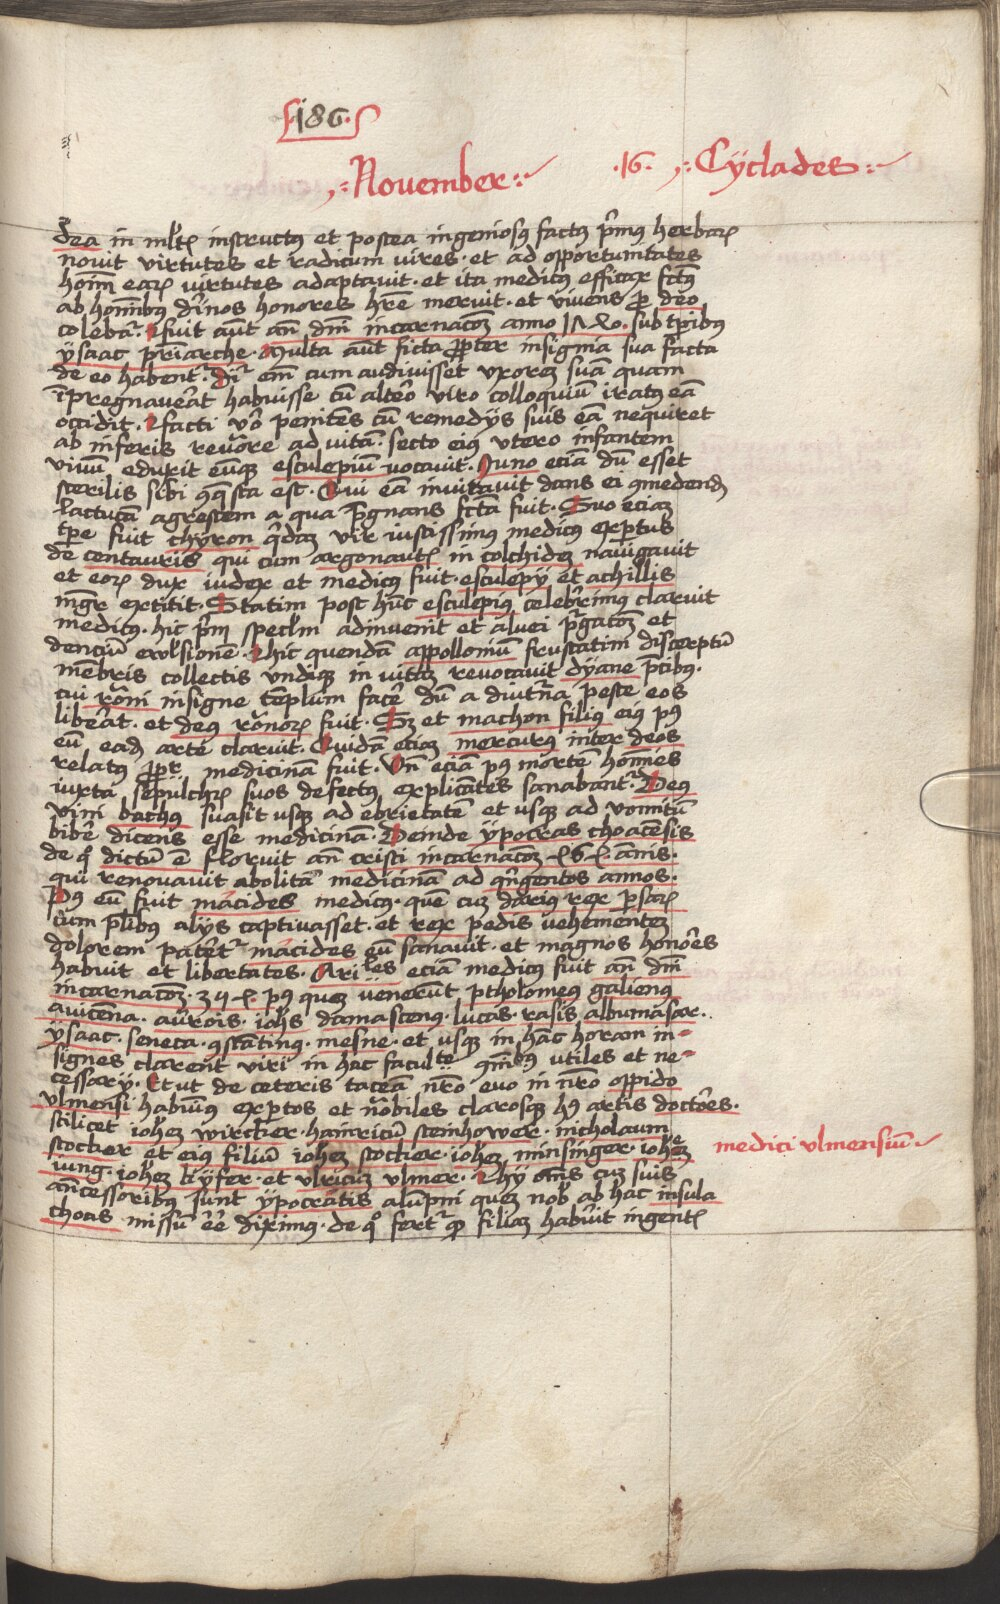 186.
November
.16. Cÿclades
dea in mlt̃ instructꝰ et postea ingeniosꝯ factꝰ p̄mꝰ herbaꝝ
novit virtutes et radicum vires · et ad opportunitates
hoim̄ eaꝝ virtutes adaptavit · et ita medicꝰ efficax fctꝰ
ab hoib̄us diīnos honores hr̄e meruit · et vivens ꝓ deo
colebat̄ . fuit aūt an̄ dn̄i incarnacōꝫ anno · sub tp̄ibꝰ
ÿsaac pr̄iarche · Multa aūt ficta ꝓpter insignia sua facta
de eo habent̄ · di eni cum audivisset vxoreꝫ suā quam
īpregnaverat habuisse cū altero viro colloquiū iratꝰ eā
occidit · facti vo penitens cū remedÿs suis eā nequiret
ab inferis revore ad vitā · secto eiꝰ vtero infantem
vivū eduxit eūqꝫ esculepiū vocavit · Juno eciā dū esset
sterilis sibi ꝯq̄sta est · Qui eā invitavit dans ei ꝯmedend̄
lactucā agrestem a qua p̄gnans fctā fuit · Suo eciaꝫ
tp̄e fuit chÿron q̄daꝫ vir iustissimꝰ medicꝰ expertus
de centauris qui cum argonaut̄ in colchideꝫ navigavit
et eoꝝ dux iudex et medicꝰ fuit · esculepÿ et achillis
mgr̄ extitit · Statim post hūc esculepiꝰ celeberimꝰ claruit
medicꝰ · hic p̄m specl̄m adinvenit et alvei p̄gacōꝫ et
denciū evulsionē · Hic quendā appolloniū frustatim discerptū
mēbris collectis vndiqꝫ in vitaꝫ revocavit dÿane p̄cibꝰ ·
cui rōni insigne templum facē dū a diutna peste eos
liberat · et deꝰ rōnoꝝ fuit · Sꝫ et machon filiꝰ eiꝰ pꝰ
eū eadē arte claruit · Quidā eciaꝫ mercurꝰ inter deos
relatꝰ ꝓpt̄ medicinā fuit · Vn̄ eciā pꝰ morte hoīes
iuxta sepulchꝝ suos defectꝰ explicātes sanabant̄ · Deꝰ
vini bachꝰ suasit usqꝫ ad ebrietatē et usqꝫ ad vomitū
bibē dicens esse medicinā · Deinde ÿpocras choacēsis
de qͦ dictū ē floruit an̄ cristi incarnacōꝫ annis ·
qui renovavit abolitā medicinā ad qn̄gentos annos ·
Pꝰ eū fuit macides medicꝰ · quē cuꝫ dariꝰ rex p̄saꝝ
cum pl̄ibꝰ alÿs captivasset · et rex pedis vehementeꝫ
dolorem pateret̄ macides eū sanavit · et magnos honores
habuit et libertates · Ariles eciā medicꝰ fuit an̄ dn̄i
incarnacōꝫ · pꝰ queꝫ venerūt ptholomeꝰ galienꝰ
avicēna · aūrois · ioh̄s damascenꝰ · lucas · rasis albumasar ·
ÿsaac · seneca · ꝯstātinꝰ · mesne · et usqꝫ in hāc horam in-
signes clarent viri in hac facul̄te qīmbꝰ utiles et ne-
cessarÿ · Et ut de ceteris taceā nr̄o evo in nr̄o oppido
vlmensi habuiꝰ exptos et nobiles clarosqꝫ hꝰ artis doctores ·
scilicet ioh̄eꝫ wircker · hainricū steinhower · nicholaum
stocker et eiꝰ filiū ioh̄eꝫ stocker · ioh̄eꝫ minsinger · ioh̄eꝫ
iung · ioh̄eꝫ kÿfer · et vlricuꝫ vlmer · Hÿ om̄s cuꝫ suis
an̄cessoribꝰ sunt ÿpocratis alūpni queꝫ nob̄ ab hac insula
choas missū ēe diximꝰ · de qͦ fert̄ ꝙ filiaꝫ habuit ingent̄
medici vlmensiū